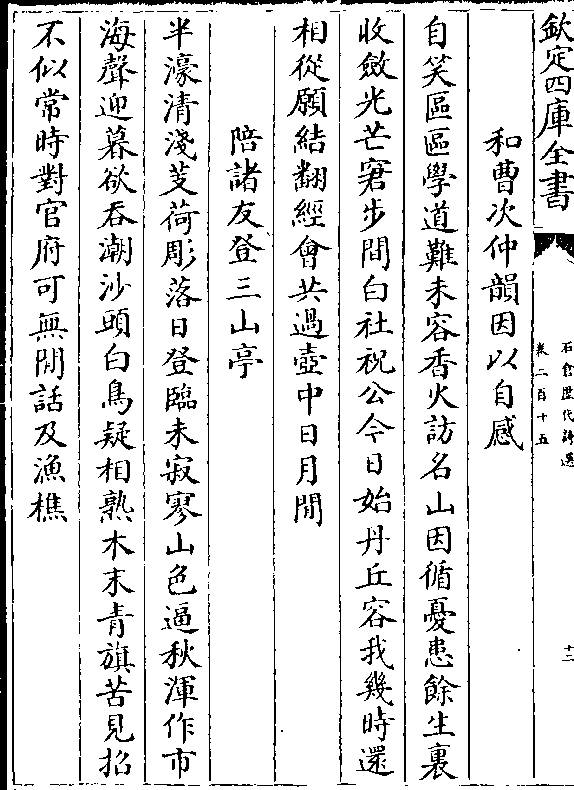 欽定四庫全書
石倉歷代詩選
卷二百十五
十二
和曹次仲韻因以自感
自笑區區學道難未容香火訪名山因循憂患餘生裏
收斂光芒窘步間白社祝公今日始丹丘容我幾時還
相從願結翻經會共過壺中日月閒
陪諸友登三山亭
半濠清淺芰荷彫落日登臨未寂寥山色逼秋渾作市
海聲迎暮欲吞潮沙頭白鳥疑相熟木末青旗苦見招
不似常時對官府可無閒話及漁樵